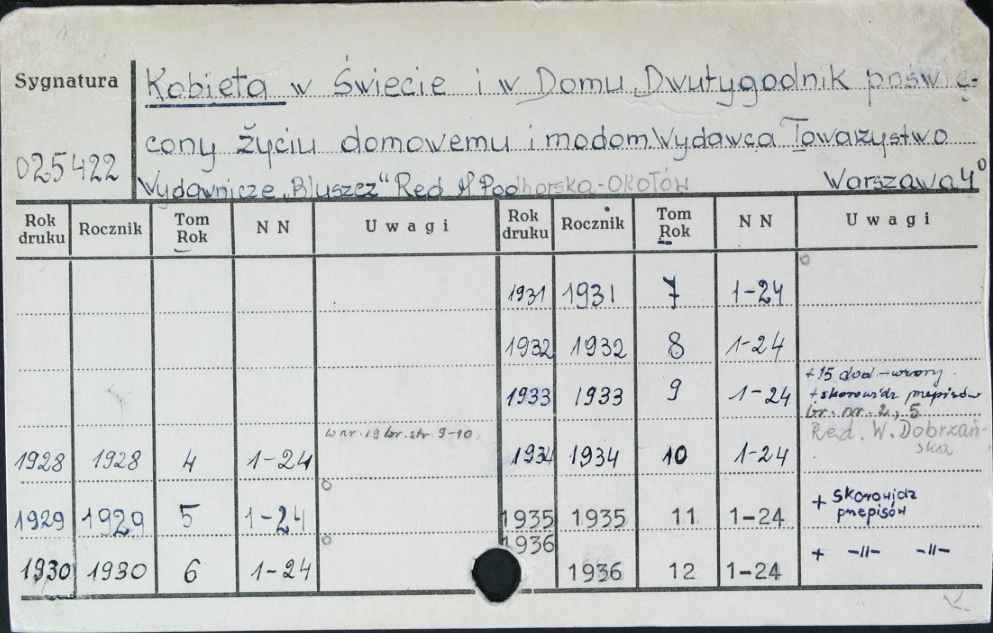 Sygnatura
Kobieta w Świecie i w Domu. Dwutygodnik poświę-
cony życiu domowemu i modom. Wydawca Towarzystwo
025422
Wydawnicze „Bluszcz” Red. M Podhorska-Okołów Warszawa 4°
Rok druku Rocznik Tom Rok N N Uwagi Rok druku Rocznik Tom Rok N N Uwagi
1931 1931 7 1-24
1932 1932 8 1-24
1933 1933 9 1-24 +15 dod - wzory
+skorowidz przepisów
br. nr. 2, 5
1928 1928 4 1-24 w nr. 19 br. str. 9-10 1934 1934 10 1-24 Red. W. Dobrzań-
ska
1929 1929 5 1-24 1935 1935 11 1-24 + skorowidz
przepisów
1930 1930 6 1-24 1936 1936 12 1-24 + -11- -11-